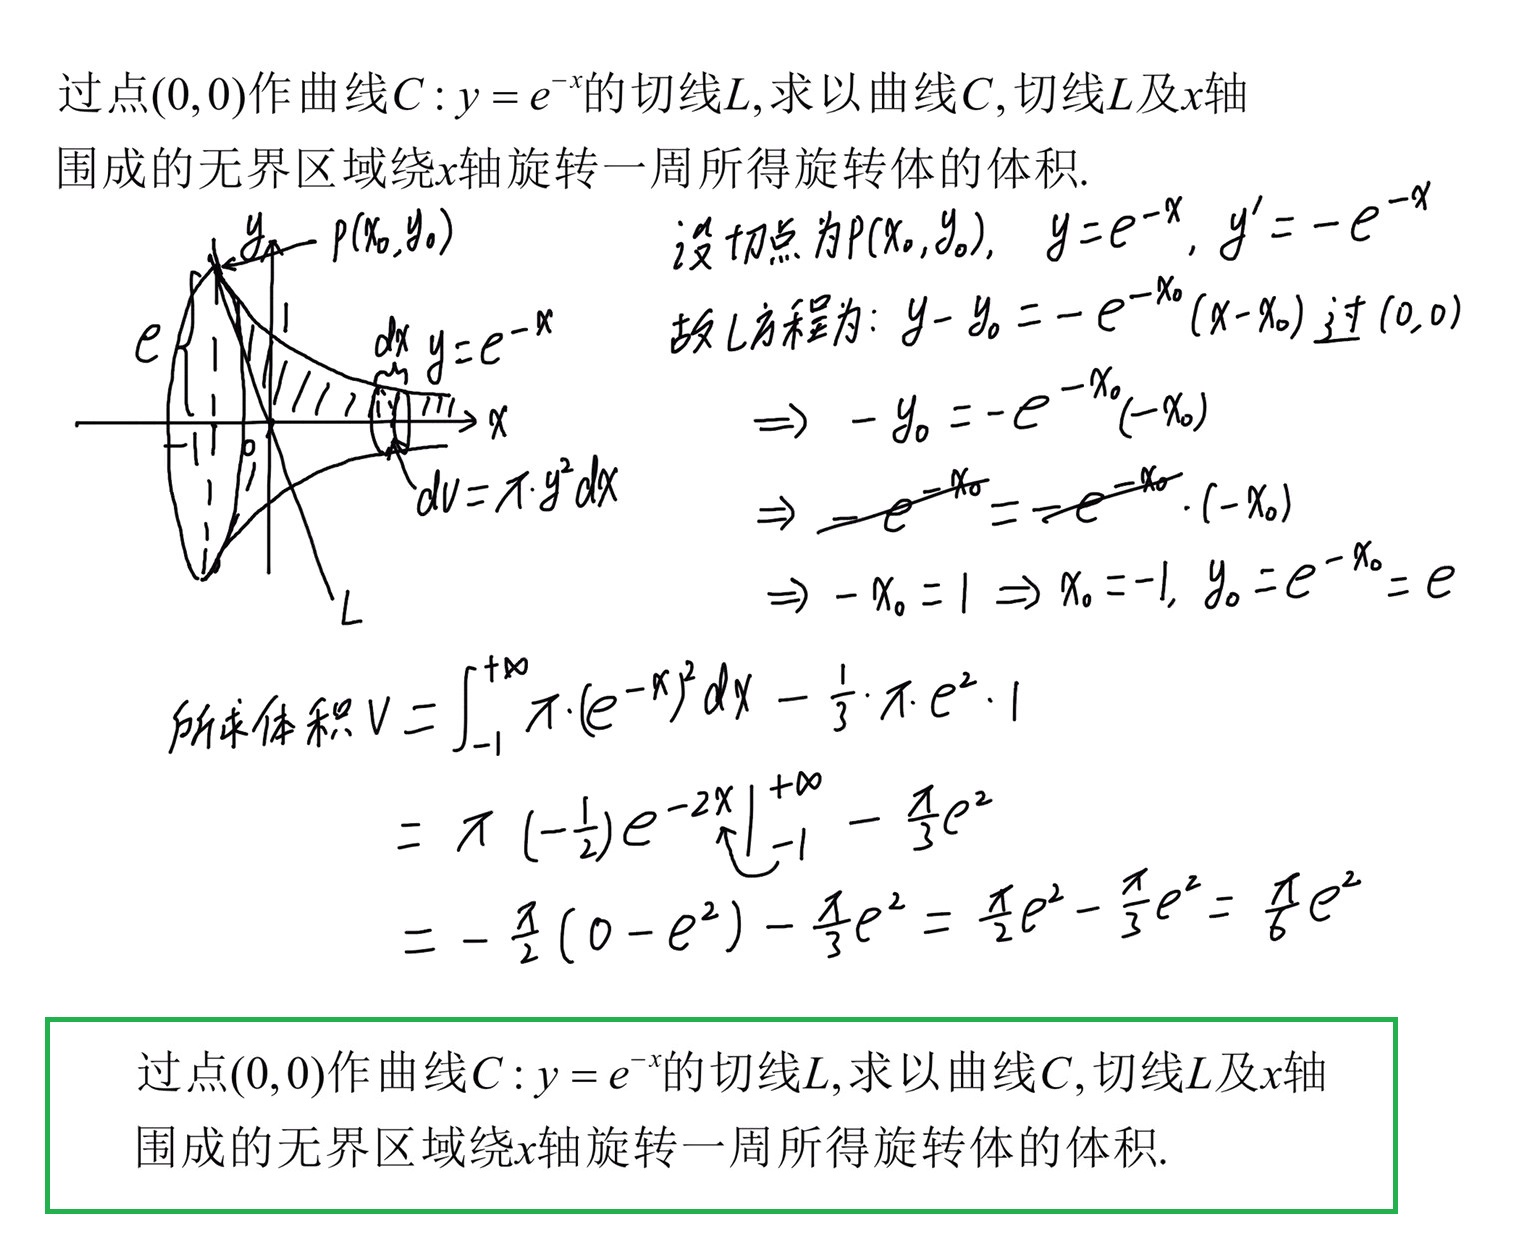 过点(0,0)作曲线C:y=e^{-x}的切线L,求以曲线C,切线L及x轴
围成的无界区域绕x轴旋转一周所得旋转体的体积.
y P(x₀,y₀)
e 1 dx y=e^{-x}
-1 0 x
dV=π·y²dx
L
设切点为P(x₀,y₀), y=e^{-x}, y'=-e^{-x}
故L方程为: y-y₀=-e^{-x₀}(x-x₀)过(0,0)
⇒ -y₀=-e^{-x₀}(-x₀)
⇒ -e^{-x₀}=-e^{-x₀}·(-x₀)
⇒ -x₀=1 ⇒ x₀=-1, y₀=e^{-x₀}=e
所求体积V=∫_{-1}^{+∞} π·(e^{-x})²dx - 1/3·π·e²·1
= π(-1/2)e^{-2x}|_{-1}^{+∞} - π/3 e²
= -π/2(0-e²) - π/3 e² = π/2 e² - π/3 e² = π/6 e²
过点(0,0)作曲线C:y=e^{-x}的切线L,求以曲线C,切线L及x轴
围成的无界区域绕x轴旋转一周所得旋转体的体积.